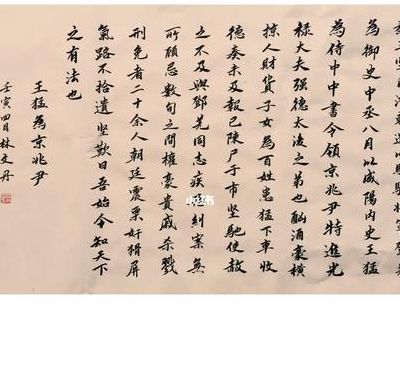 為御史中丞八月以咸陽內史王猛
為侍中中書令領京兆尹特進光
祿大夫强德太後之弟也酗酒豪橫
掠人財貨子女為百姓患猛下車收
德奏未及報已陳尸于市堅馳使赦
之不及與鄧羌同志疾糾案無
所顧忌數旬之間權豪貴戚杀戮
刑免者二十余人朝廷震栗奸猾屏
氣路不拾遺堅歎曰吾始今知天下
之有法也
王猛為京兆尹
壬寅四月林文丹
小红书